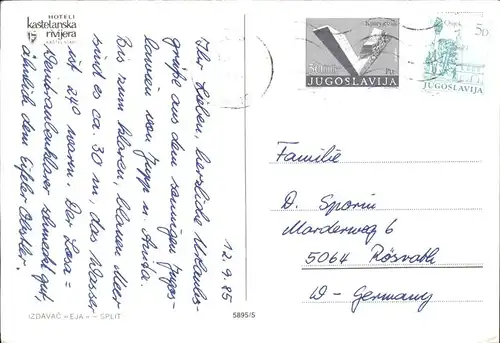 HOTELI
kaštelanska
rivijera
12.9.85
Ihr Lieben, herzliche Urlaubs-
grüße aus dem sonnigen Jugos-
lawien von Jupp u. Anita.
Bis zum klaren, blauen Meer
sind es ca. 30 m, das Wasser
ist 24° warm. Der Losa =
Weintraubenklarer schmeckt gut,
ähnlich dem Eifeler
IZDAVAČ »EJA« – SPLIT
5895/5
JUGOSLAVIJA
Osijek
5p
JUGOSLAVIJA
Familie
D. Sporin
Marderweg 6
5064 Rösrath
W-Germany